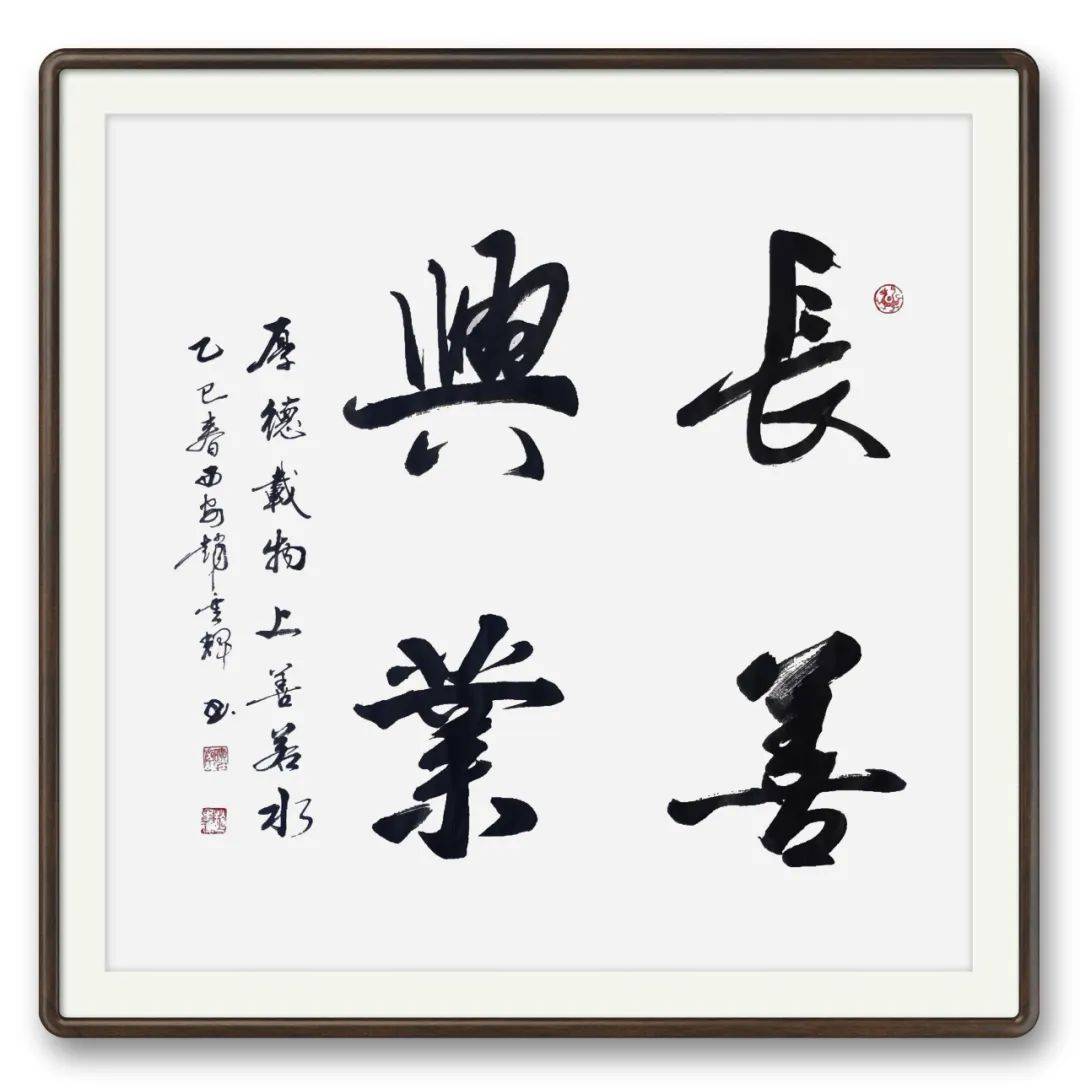 長善
興業
厚德載物上善若水
乙巳春西安趙雲輝書